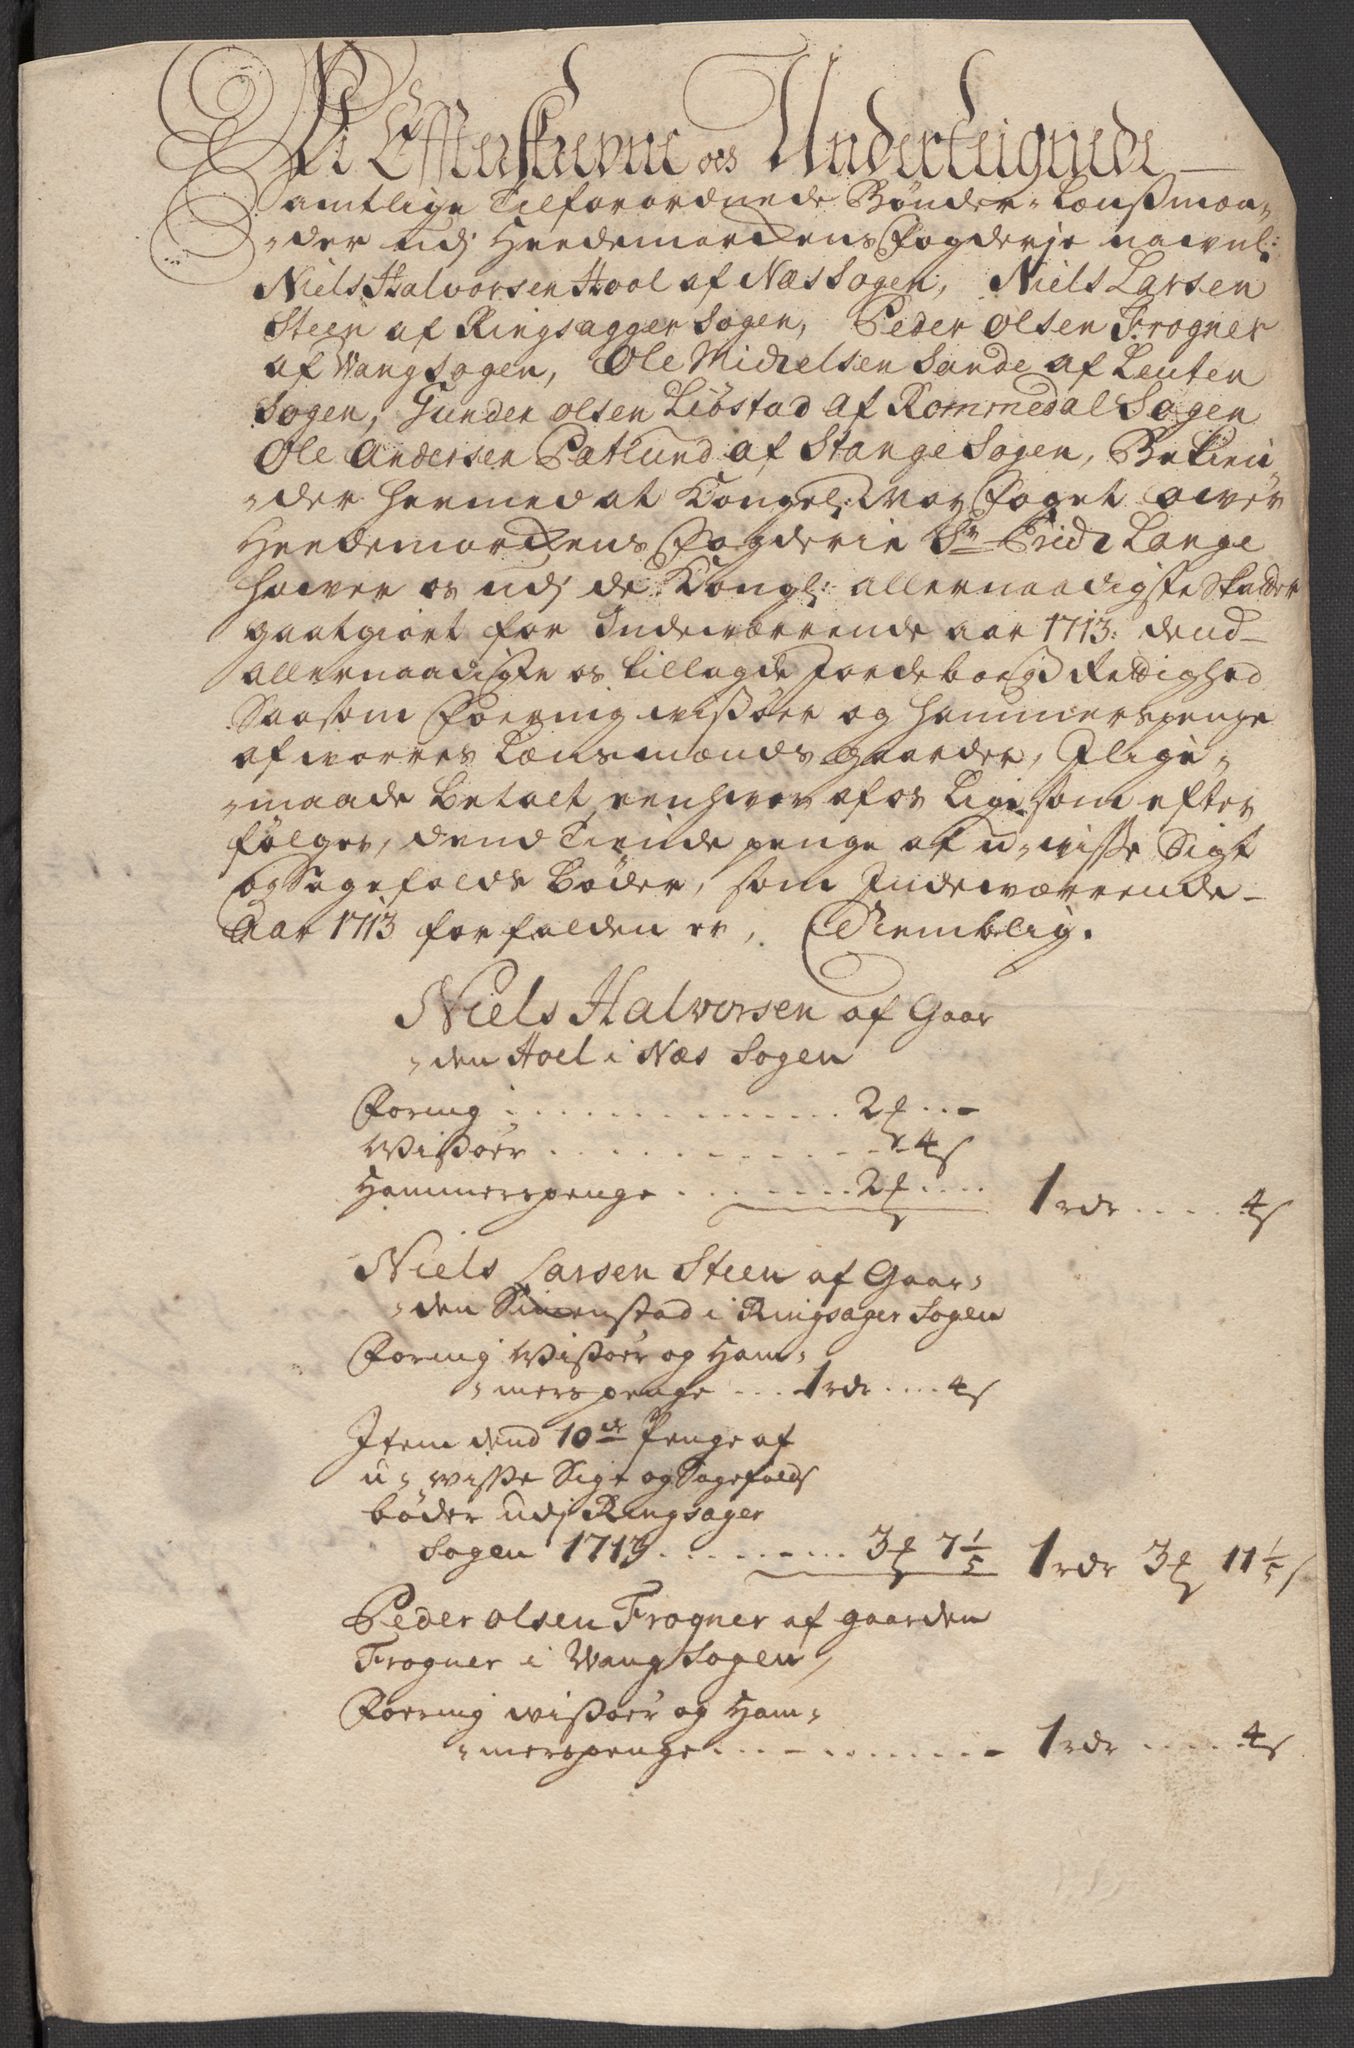 Vi Effterskrevne oc Underteignede
Samtlige Tilforordnede Bønder-Lenssmen-
der udj Heedemarckens Fogderje navnl:
Niels Halvorsen Hool af Næs Sogen, Niels Larsen
Steen af Ringsagger Sogen, Peder Olsen Frogner
af Wang Sogen, Ole Michelsen Sande af Leuten
Sogen, Gunder Olsen Liøstad af Rommedal Sogen
Ole Andersen Patlund af Stange Sogen, Bekien-
der hermed at Kongel: May Foget over
Heedemarckens Fogderie Sr Fridr Lange
haver os udj de Kongl: allernaadigste Skatter
gaatgiort for Indeværrende aar 1713: dend
allernaadigste os tillagde Jordebogs Rettighed
Saasom Foering wissøer og Hammerspenge
af vorres Lensmands gaarder, Jlige-
maade betalt eenhver af os Lige som efter
følger, dend Tiende penge af u-wisse Sigt
og Sagefalds bøder, som Indeværrende
Aar 1713 forfalden er, Nemblig.
Niels Halvorsen af Gaar
den Hoel i Næs Sogen
Foring . . . 2 ƒ . . -
Wissøer . . . 4 s
Hammerspenge . . . 2 ƒ . . . 1 rdr . . . . 4 s
Niels Larsen Steen af Gaar-
den Simenstad i Ringsager Sogen
Foring Wissøer og Ham-
merspenge . . . 1 rdr . . . . 4 s
Item dend 10de Penge af
u-wisse Sigt og Sagefalds
bøder udj Ringsager
Sogen 1713 . . . 3 ƒ 7 1/5 1 rdr 3 ƒ 11 1/5 s
Peder Olsen Frogner af gaarden
Frogner i Wang Sogen,
Foering wissøer og Ham-
merspenge . . . 1 rdr . . . . 4 s